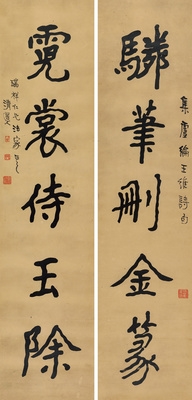 集盧綸王維詩句
驎筆刪金篆
霓裳侍玉除
瑞祥仁兄法家正之